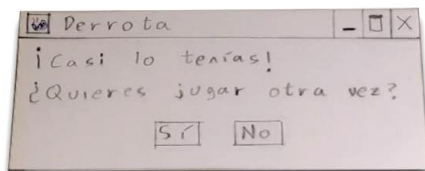 Derrota
¡Casi lo tenías!
¿Quieres jugar otra vez?
Sí No